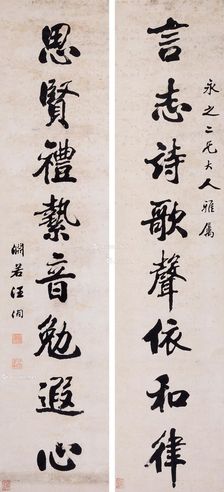 永之二兄大人雅属
言志詩歌聲依和律
思賢禮縶音勉遐心
淵若汪洵